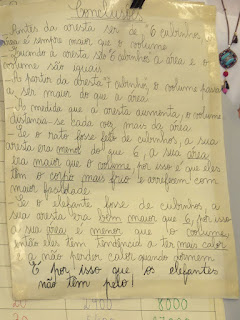 Conclusões
Antes da aresta ser de "6 cubinhos", a
área é sempre maior que o volume.
Quando a aresta são "6 cubinhos" a área e o
volume são iguais.
A partir da aresta "7 cubinhos", o volume passa
a ser maior do que a área.
À medida que a aresta aumenta, o volume
distancia-se cada vez mais da área.
Se o rato fosse feito de cubinhos, a sua
aresta era menor do que 6, a sua área
era maior que o volume, por isso é que eles
têm o corpo mais frio e arrefecem com
maior facilidade.
Se o elefante fosse de cubinhos, a
sua aresta era bem maior que 6, por isso
a sua área é menor que o volume,
então eles têm tendência a ter mais calor
e a não perder calor quando dormem.
É por isso que os elefantes
não têm pelo!
20 2400 8000